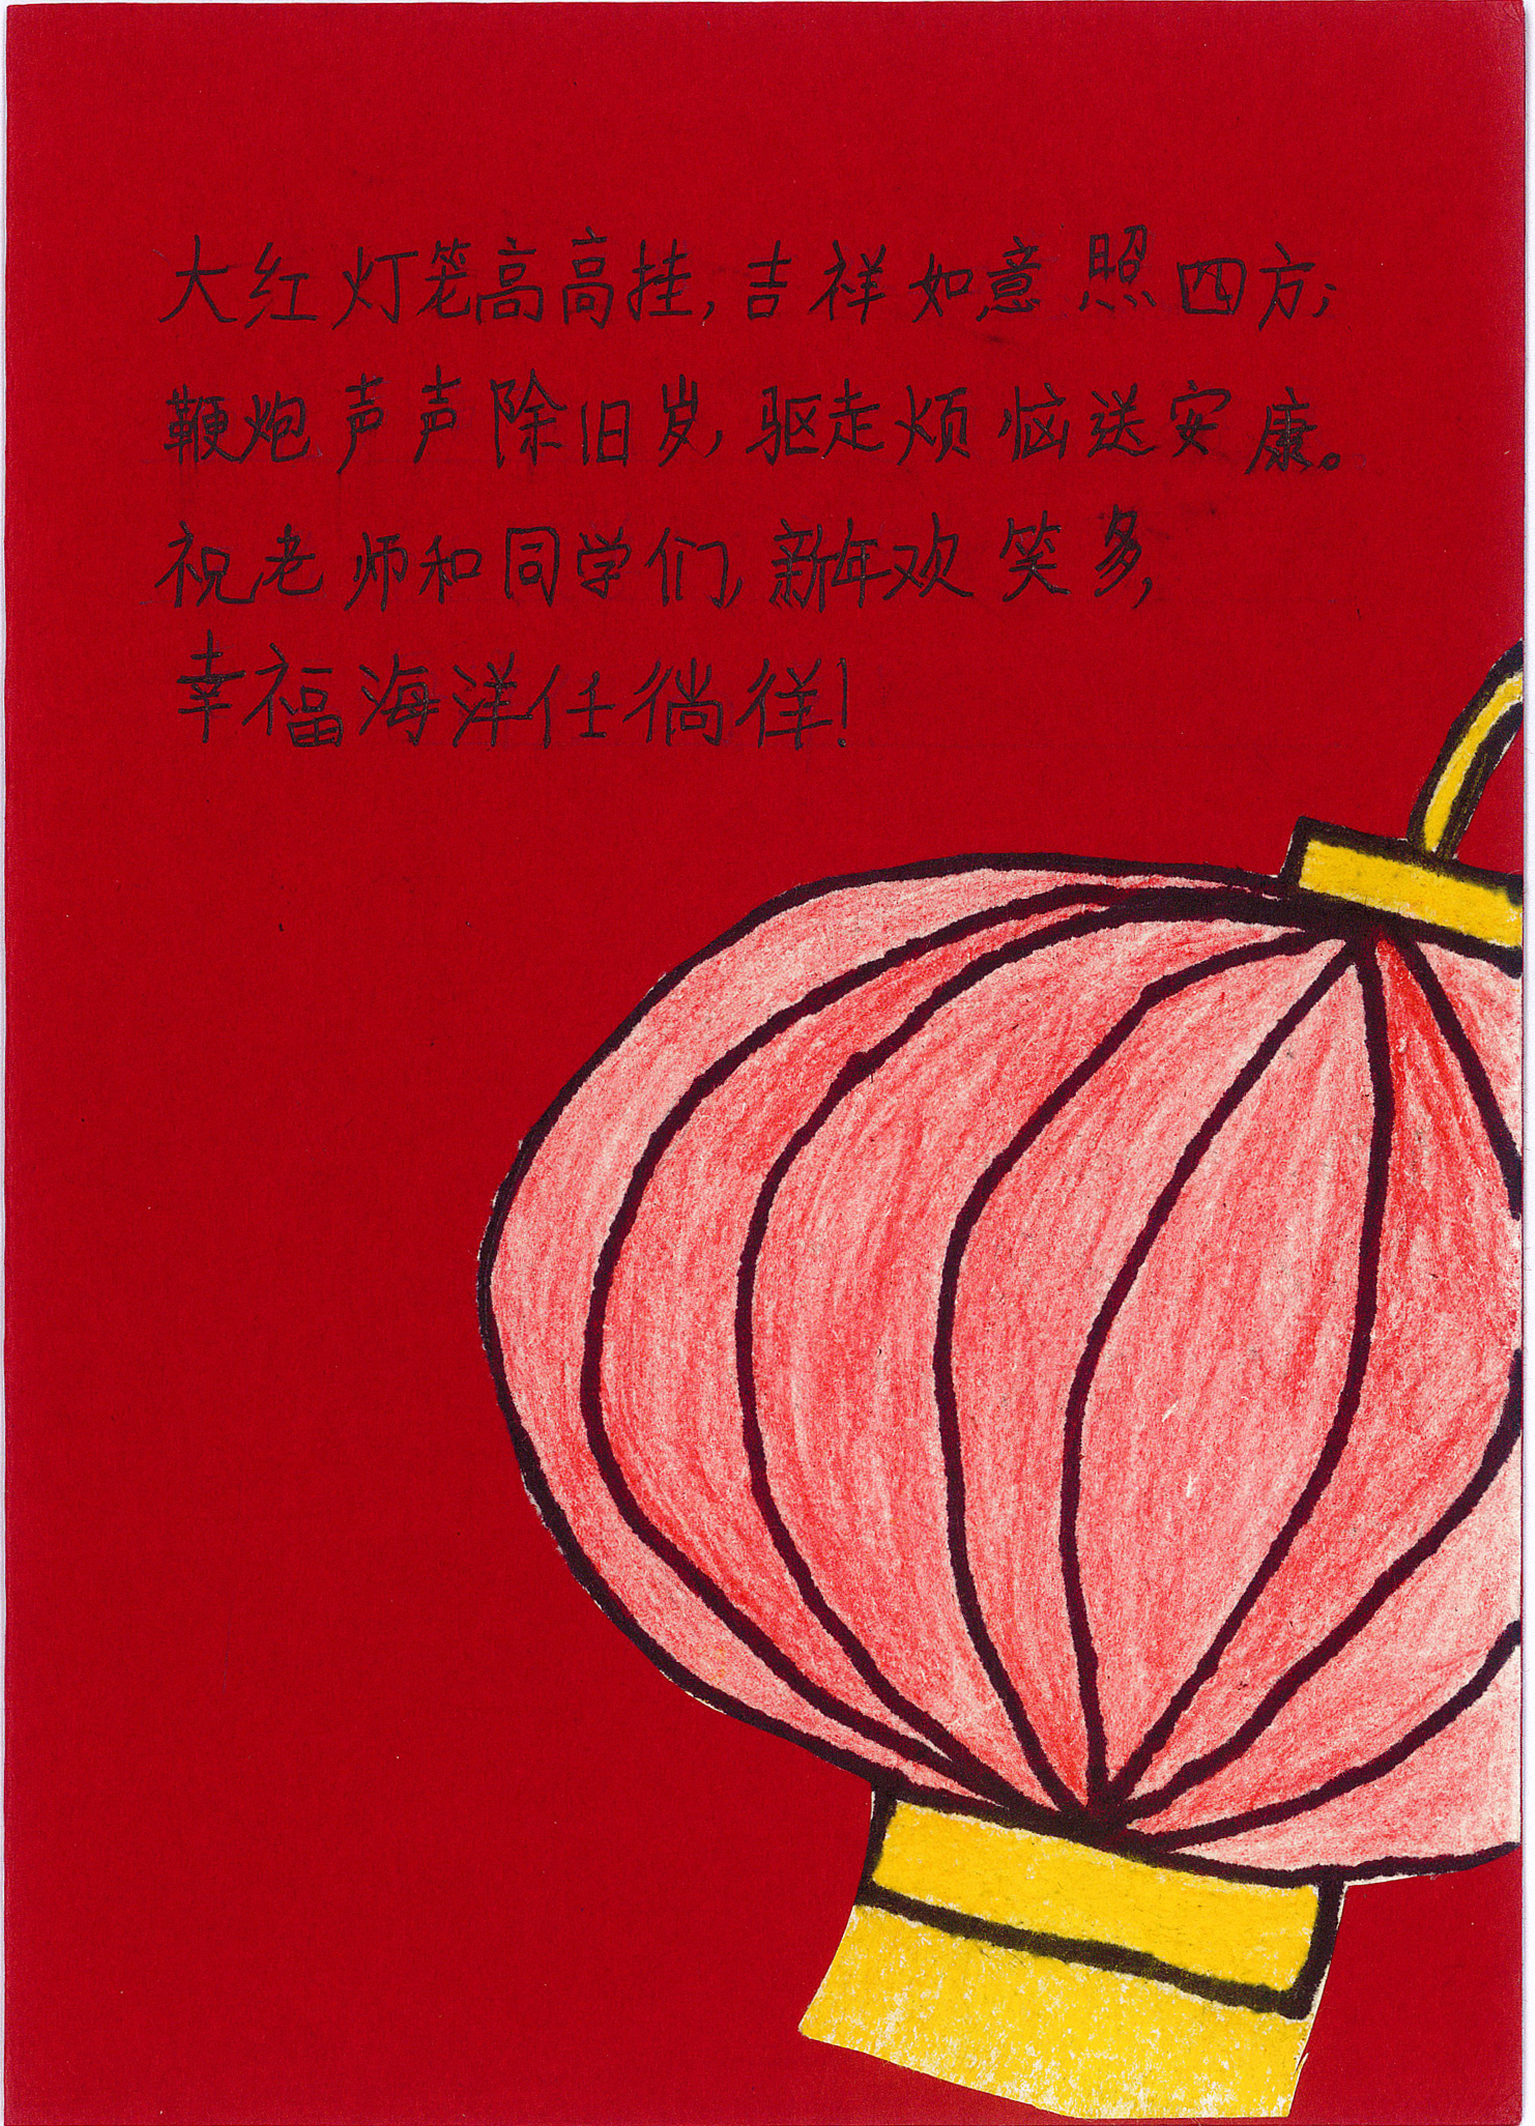 大红灯笼高高挂,吉祥如意照四方;
鞭炮声声除旧岁,驱走烦恼送安康。
祝老师和同学们,新年欢笑多,
幸福海洋任徜徉!